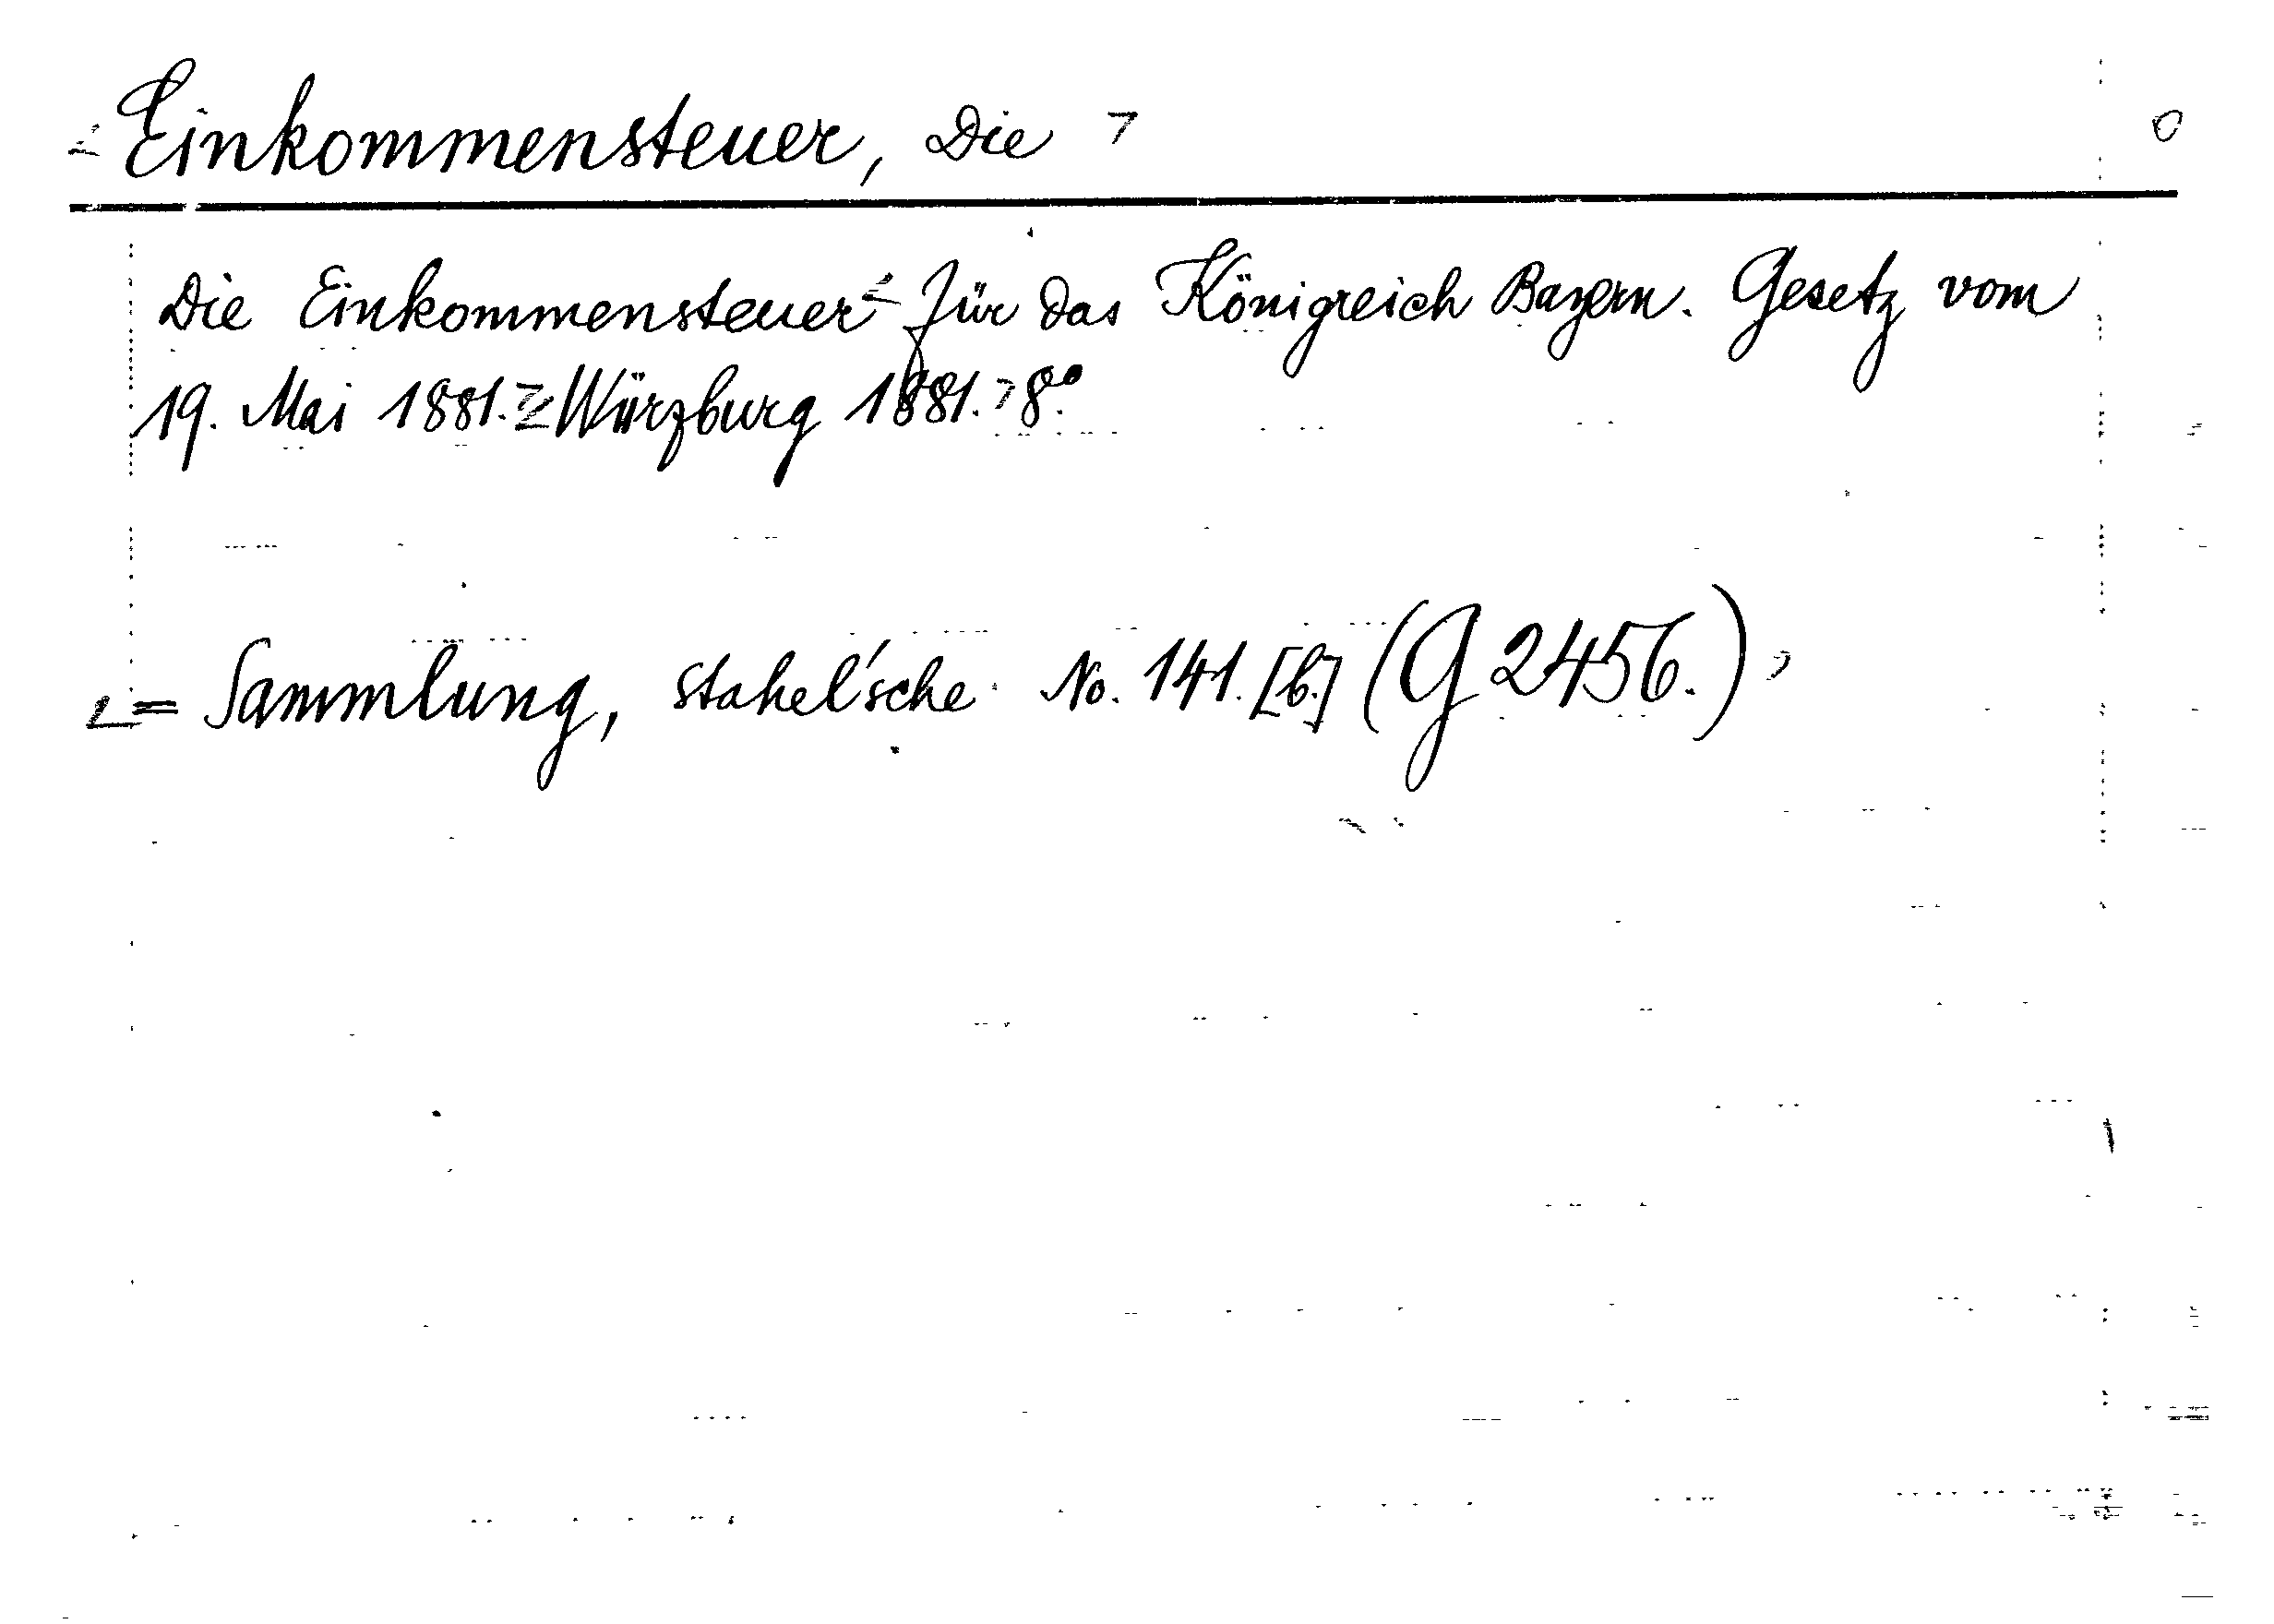 Einkommensteuer, Die 0
Die Einkommensteuer für das Königreich Bayern. Gesetz vom
19. Mai 1881. Würzburg 1881. 8°.
= Sammlung, Stahel'sche No. 141. [b.] (G 2456.)